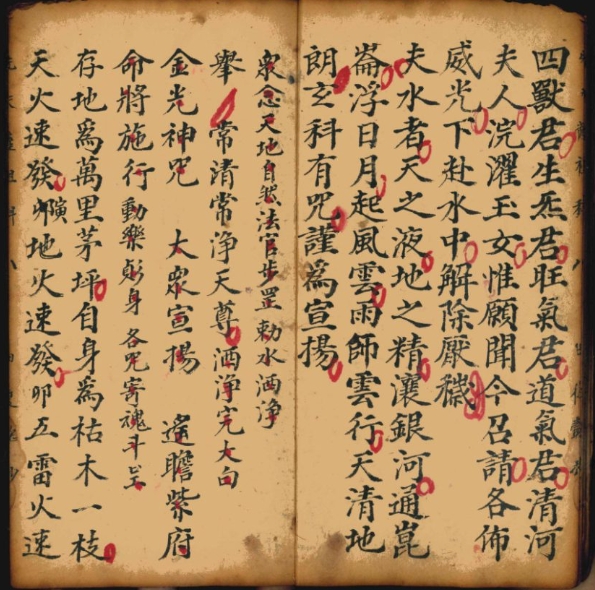 四獸君生炁君旺氣君道氣君清河
夫人浣濯玉女惟願聞今召請各佈
威光下赴水中解除厭穢
夫水者天之液地之精瀼銀河通崑
崙浮日月起風雲雨師雲行天清地
朗玄科有咒謹為宣揚
衆念天地自然法官步罡勅水洒淨
舉 常清常淨天尊洒淨完大白
金光神咒 大衆宣揚 遙瞻紫府
命將施行動樂 身各咒寄魂斗
存地為萬里茅坪自身為枯木一枝
天火速發 地火速發卯五雷火速